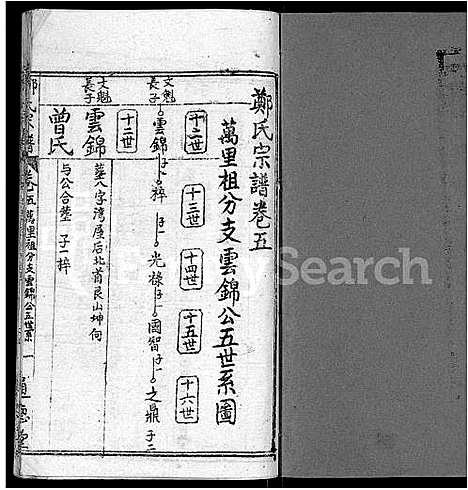 鄭氏宗譜卷五
萬里祖分支雲錦公五世系圖
十二世 十三世 十四世 十五世 十六世
文魁長子 雲錦 子一 梓 子一 光祿 子一 國智 子一 之鼎 子二
十二世
文魁長子 雲錦 墓八字湾屋后北首艮山坤向
曾氏 与公合塟 子一梓
鄭氏宗譜 卷五 萬里祖分支雲錦公五世系 一
Search